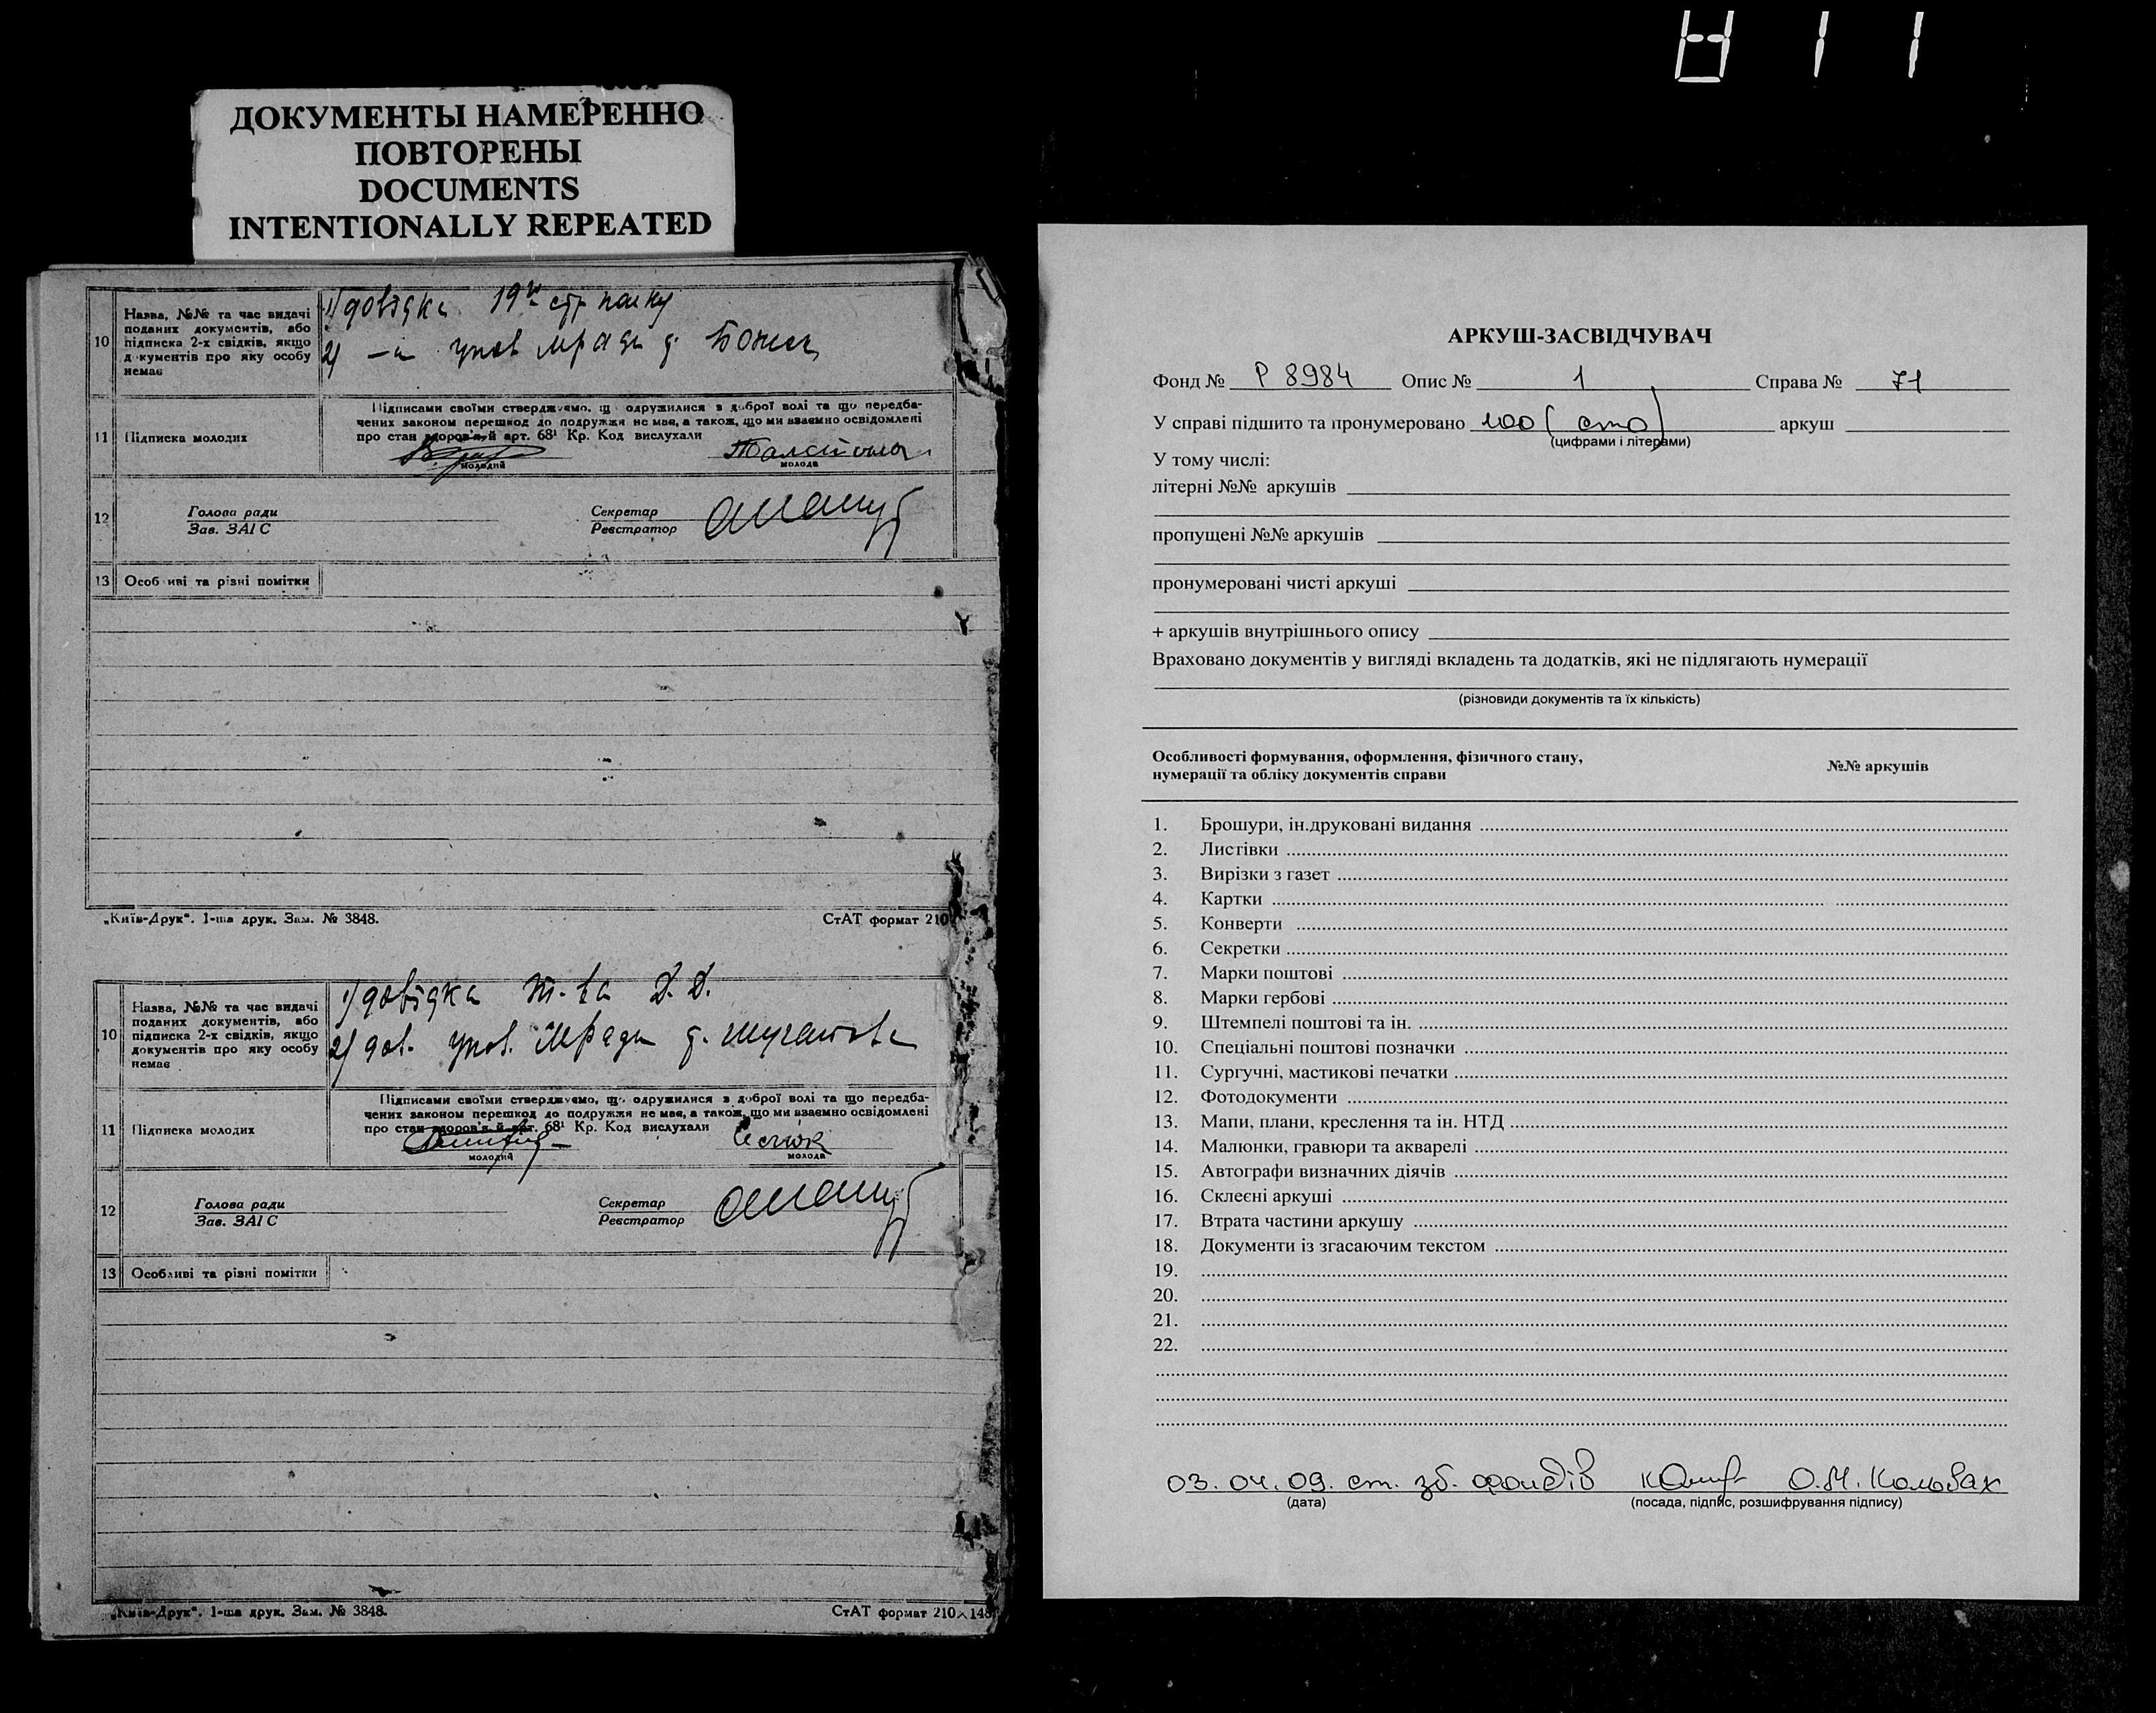 ДОКУМЕНТЫ НАМЕРЕННО
ПОВТОРЕНЫ
DOCUMENTS
INTENTIONALLY REPEATED
10
Назва, №№ та час видачі
поданих документів, або
підписка 2-х свідків, якщо
д кументів про яку особу
немає
1) довідка 19
2)
11
Підписка молодих
Підписами своїми стверджуємо, щ одружилися з доброї волі та що передба-
чених законом перешкод до подружжя не має, а також, що ми взаємно освідомлені
про стан здоров'я, й арт. 68¹ Кр. Код вислухали
молодий
молода
12
Голова ради
Зав. ЗАГС
Секретар
Реєстратор
13
Особ иві та різні помітки
„Київ-Друк“. 1-ша друк. Зам. № 3848.
СтАТ формат 210
10
Назва, №№ та час видачі
поданих документів, або
підписка 2-х свідків, якщо
документів про яку особу
немає
1) довідка
2) дов.
11
Підписка молодих
Підписами своїми стверджуємо, що одружилися з доброї волі та що передба-
чених законом перешкод до подружжя не має, а також, що ми взаємно освідомлені
про стан здоров'я, й арт. 68¹ Кр. Код вислухали
молодий
молода
12
Голова ради
Зав. ЗАГС
Секретар
Реєстратор
13
Особливі та різні помітки
„Київ-Друк“. 1-ша друк. Зам. № 3848.
СтАТ формат 210×148
АРКУШ-ЗАСВІДЧУВАЧ
Фонд № Р 8984 Опис № 1 Справа № 71
У справі підшито та пронумеровано 100 (сто) аркуш
(цифрами і літерами)
У тому числі:
літерні №№ аркушів
пропущені №№ аркушів
пронумеровані чисті аркуші
+ аркушів внутрішнього опису
Враховано документів у вигляді вкладень та додатків, які не підлягають нумерації
(різновиди документів та їх кількість)
Особливості формування, оформлення, фізичного стану,
нумерації та обліку документів справи
№№ аркушів
1. Брошури, ін.друковані видання
2. Листівки
3. Вирізки з газет
4. Картки
5. Конверти
6. Секретки
7. Марки поштові
8. Марки гербові
9. Штемпелі поштові та ін.
10. Спеціальні поштові позначки
11. Сургучні, мастикові печатки
12. Фотодокументи
13. Мапи, плани, креслення та ін. НТД
14. Малюнки, гравюри та акварелі
15. Автографи визначних діячів
16. Склеєні аркуші
17. Втрата частини аркушу
18. Документи із згасаючим текстом
19.
20.
21.
22.
03.04.09. ст. зб. фондів О.М. Кольвах
(дата)
(посада, підпис, розшифрування підпису)